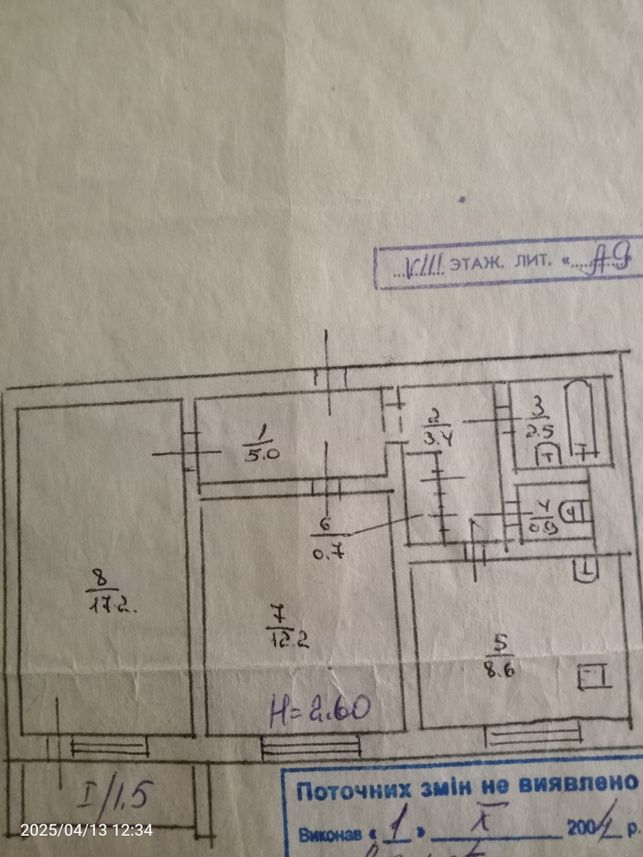 VIII ЭТАЖ. ЛИТ. «
1
5.0
2
3.4
3
2.5
4
0.9
6
0.7
8
17.2
7
12.2
5
8.6
H=2.60
I/1.5
Поточних змін не виявлено
Виконав « 1 » X 2004 р.
2025/04/13 12:34